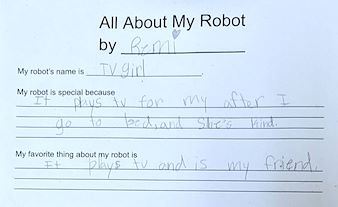 All About My Robot
by Remi
My robot's name is TV girl.
My robot is special because
It plays tv for my after I
go to bed, and She's kind.
My favorite thing about my robot is
It plays tv and is my friend.